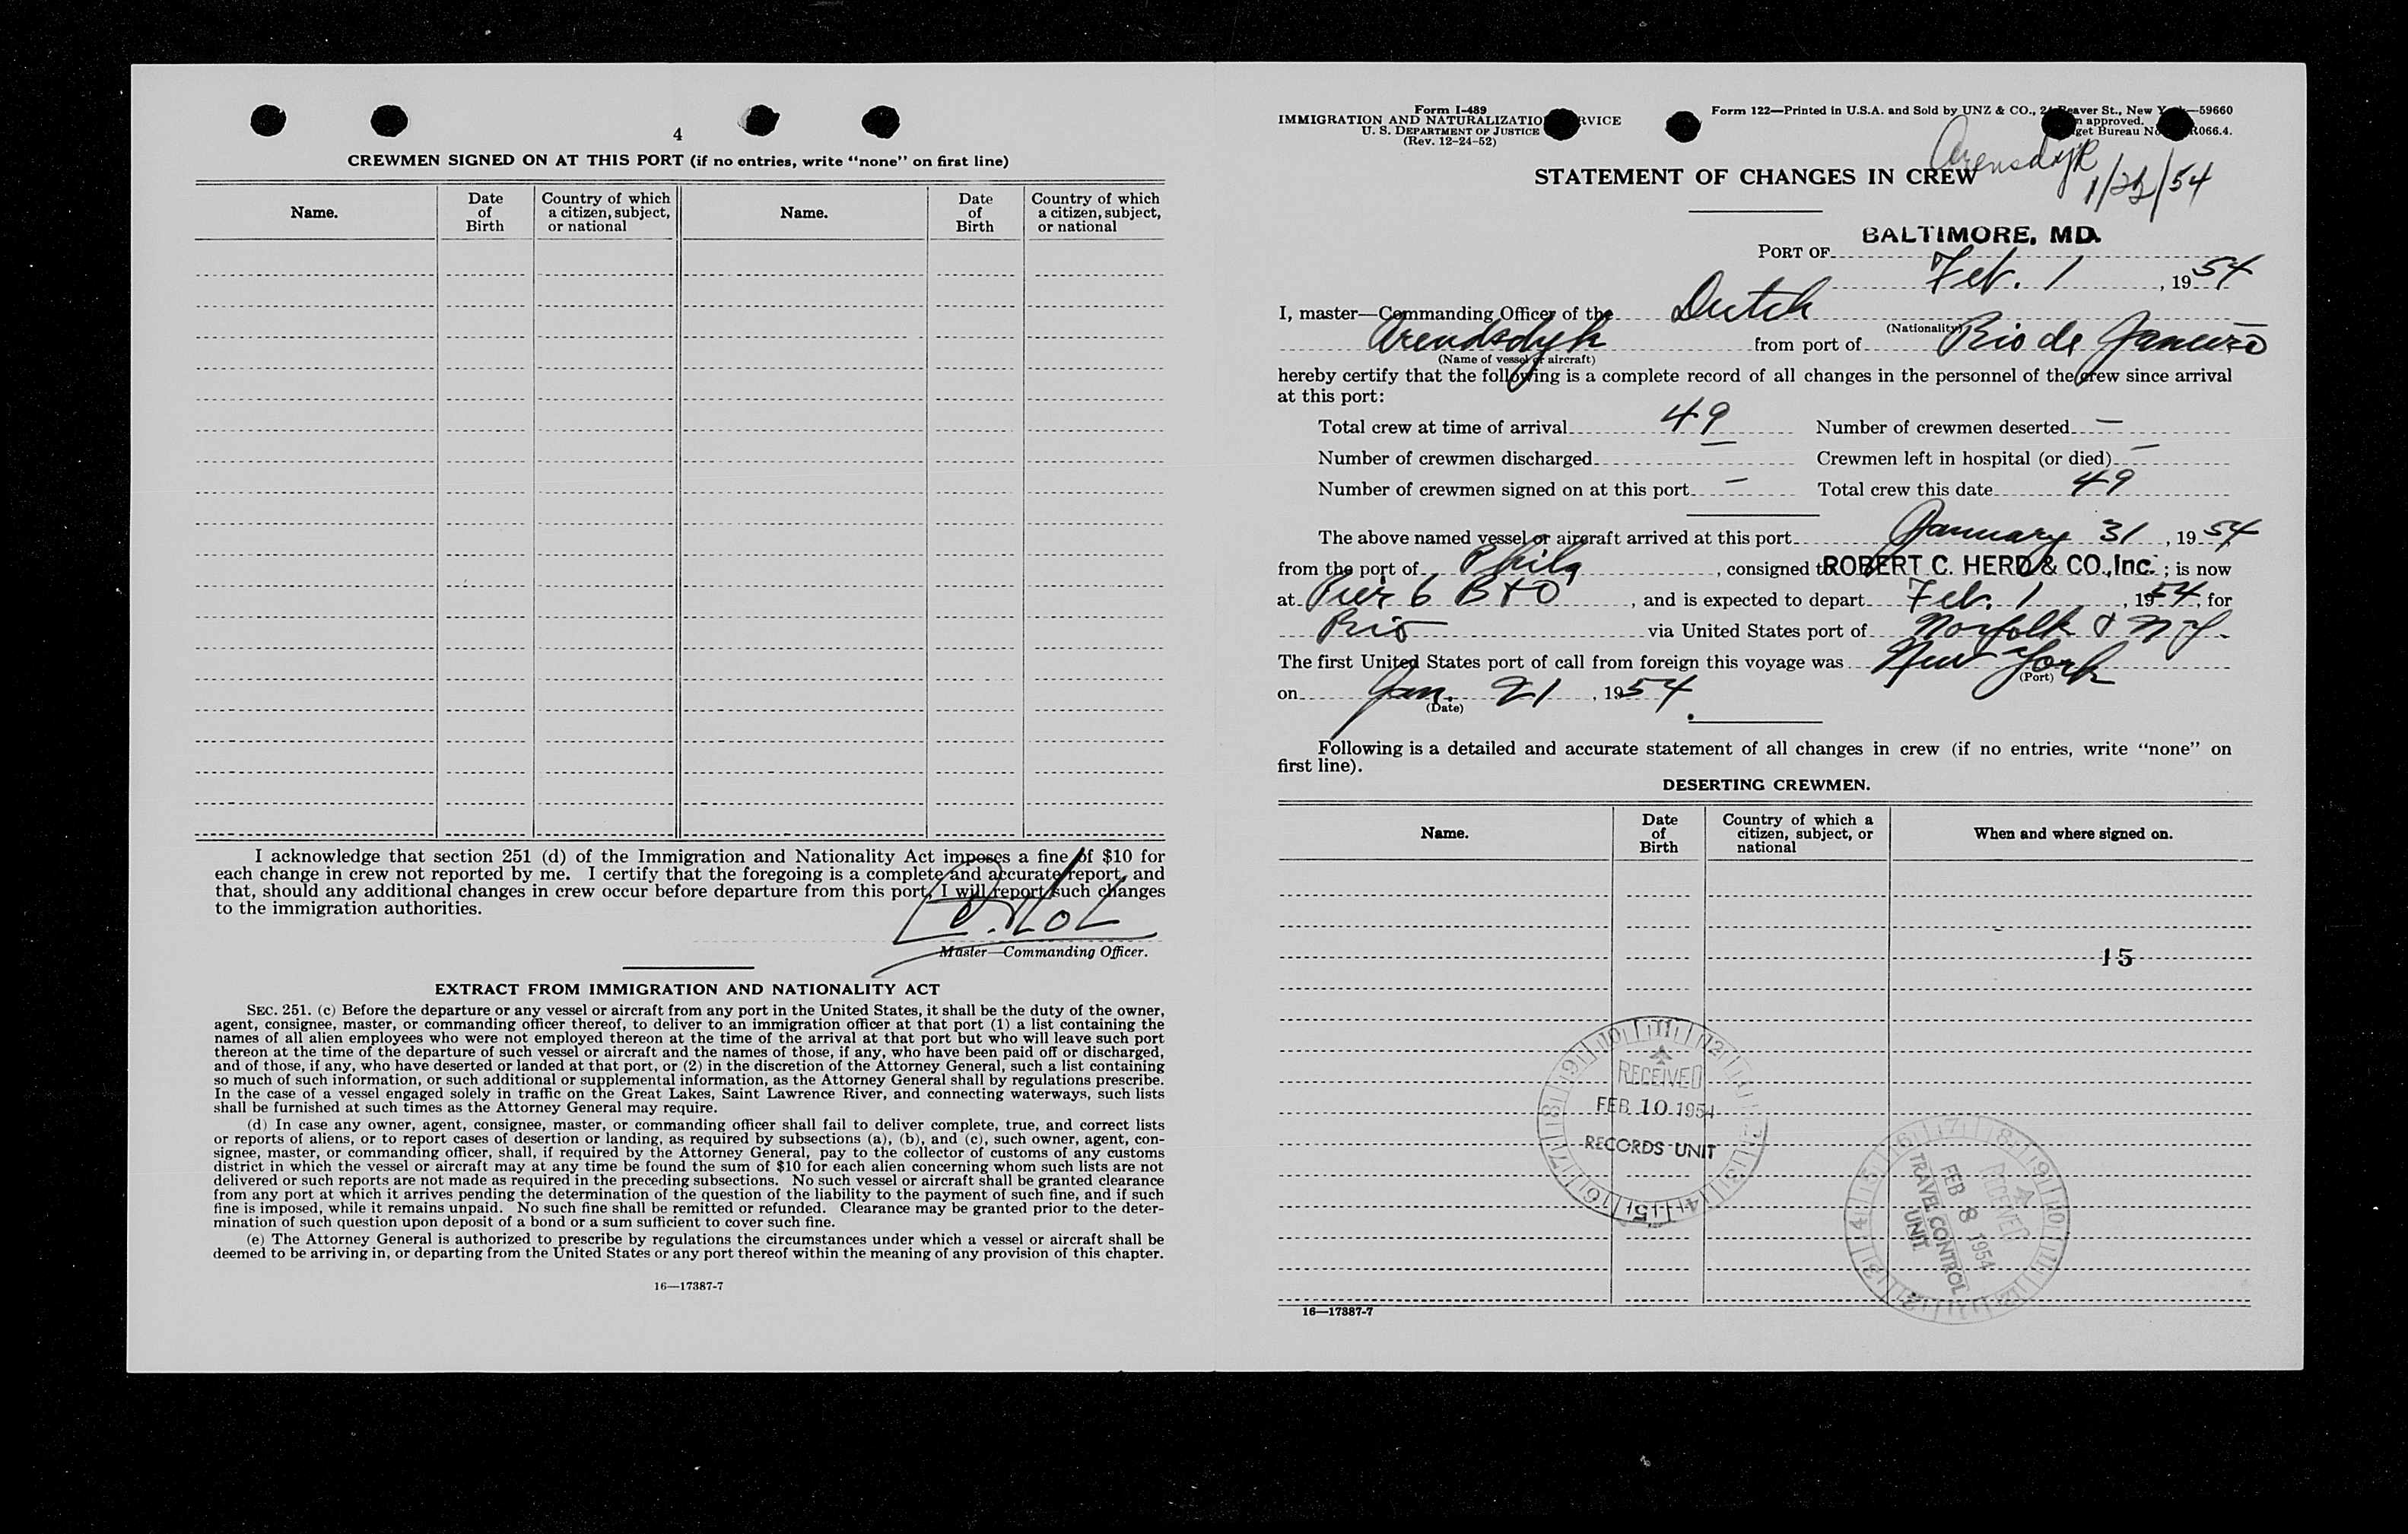 4
CREWMEN SIGNED ON AT THIS PORT (if no entries, write “none” on first line)
Name. Date of Birth Country of which a citizen, subject, or national Name. Date of Birth Country of which a citizen, subject, or national
I acknowledge that section 251 (d) of the Immigration and Nationality Act imposes a fine of $10 for
each change in crew not reported by me. I certify that the foregoing is a complete and accurate report, and
that, should any additional changes in crew occur before departure from this port, I will report such changes
to the immigration authorities.
Master—Commanding Officer.
EXTRACT FROM IMMIGRATION AND NATIONALITY ACT
SEC. 251. (c) Before the departure or any vessel or aircraft from any port in the United States, it shall be the duty of the owner,
agent, consignee, master, or commanding officer thereof, to deliver to an immigration officer at that port (1) a list containing the
names of all alien employees who were not employed thereon at the time of the arrival at that port but who will leave such port
thereon at the time of the departure of such vessel or aircraft and the names of those, if any, who have been paid off or discharged,
and of those, if any, who have deserted or landed at that port, or (2) in the discretion of the Attorney General, such a list containing
so much of such information, or such additional or supplemental information, as the Attorney General shall by regulations prescribe.
In the case of a vessel engaged solely in traffic on the Great Lakes, Saint Lawrence River, and connecting waterways, such lists
shall be furnished at such times as the Attorney General may require.
(d) In case any owner, agent, consignee, master, or commanding officer shall fail to deliver complete, true, and correct lists
or reports of aliens, or to report cases of desertion or landing, as required by subsections (a), (b), and (c), such owner, agent, con-
signee, master, or commanding officer, shall, if required by the Attorney General, pay to the collector of customs of any customs
district in which the vessel or aircraft may at any time be found the sum of $10 for each alien concerning whom such lists are not
delivered or such reports are not made as required in the preceding subsections. No such vessel or aircraft shall be granted clearance
from any port at which it arrives pending the determination of the question of the liability to the payment of such fine, and if such
fine is imposed, while it remains unpaid. No such fine shall be remitted or refunded. Clearance may be granted prior to the deter-
mination of such question upon deposit of a bond or a sum sufficient to cover such fine.
(e) The Attorney General is authorized to prescribe by regulations the circumstances under which a vessel or aircraft shall be
deemed to be arriving in, or departing from the United States or any port thereof within the meaning of any provision of this chapter.
16—17387-7
Form I-489
IMMIGRATION AND NATURALIZATIO RVICE
U. S. DEPARTMENT OF JUSTICE
(Rev. 12-24-52)
Form 122—Printed in U.S.A. and Sold by UNZ & CO., 24 Beaver St., New Y —59660
n approved.
get Bureau No. R066.4.
Arensdyk
1/ /54
STATEMENT OF CHANGES IN CREW
BALTIMORE, MD.
PORT OF
Feb. 1, 1954
I, master—Commanding Officer of the Dutch
(Nationality)
Arendsdyk from port of Rio de Janeiro
(Name of vessel or aircraft)
hereby certify that the following is a complete record of all changes in the personnel of the crew since arrival
at this port:
Total crew at time of arrival 49 Number of crewmen deserted —
Number of crewmen discharged — Crewmen left in hospital (or died) —
Number of crewmen signed on at this port — Total crew this date 49
The above named vessel or aircraft arrived at this port January 31, 1954
from the port of Phila, consigned to ROBERT C. HERD & CO., Inc.; is now
at Pier 6 B+O, and is expected to depart Feb. 1, 1954, for
Rio via United States port of Norfolk & N Y.
The first United States port of call from foreign this voyage was New York
(Port)
on Jan. 21, 1954
(Date)
Following is a detailed and accurate statement of all changes in crew (if no entries, write “none” on
first line).
DESERTING CREWMEN.
Name. Date of Birth Country of which a citizen, subject, or national When and where signed on.
15
RECEIVED
FEB 10 1954
RECORDS UNIT
RECEIVED
FEB 8 1954
TRAVEL CONTROL
UNIT
16—17387-7